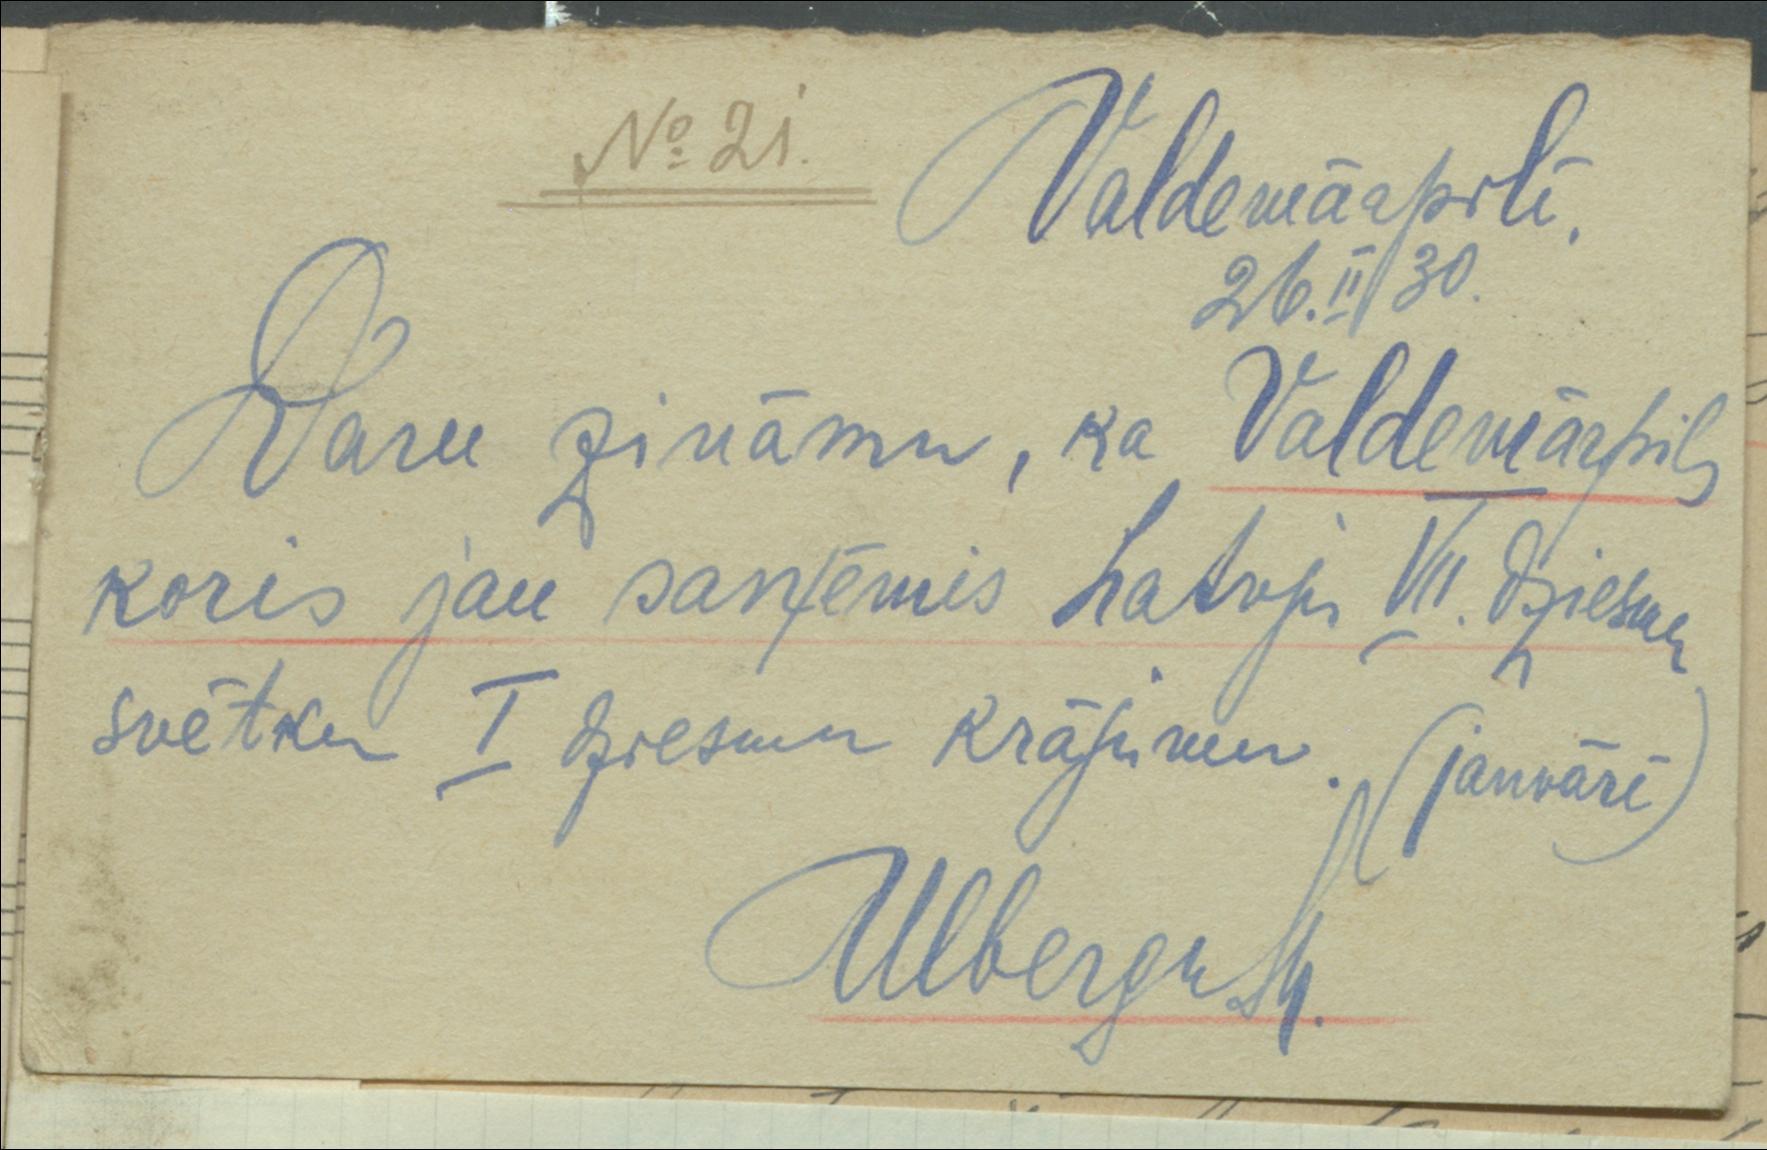 No 21.
Valdemārpilī,
26.II/30.
Daru zināmu, ka Valdemārpils
koris jau saņēmis Latvju VII. dziesmu
svētku I dziesmu krājumu. (janvārī)
Ulbergu